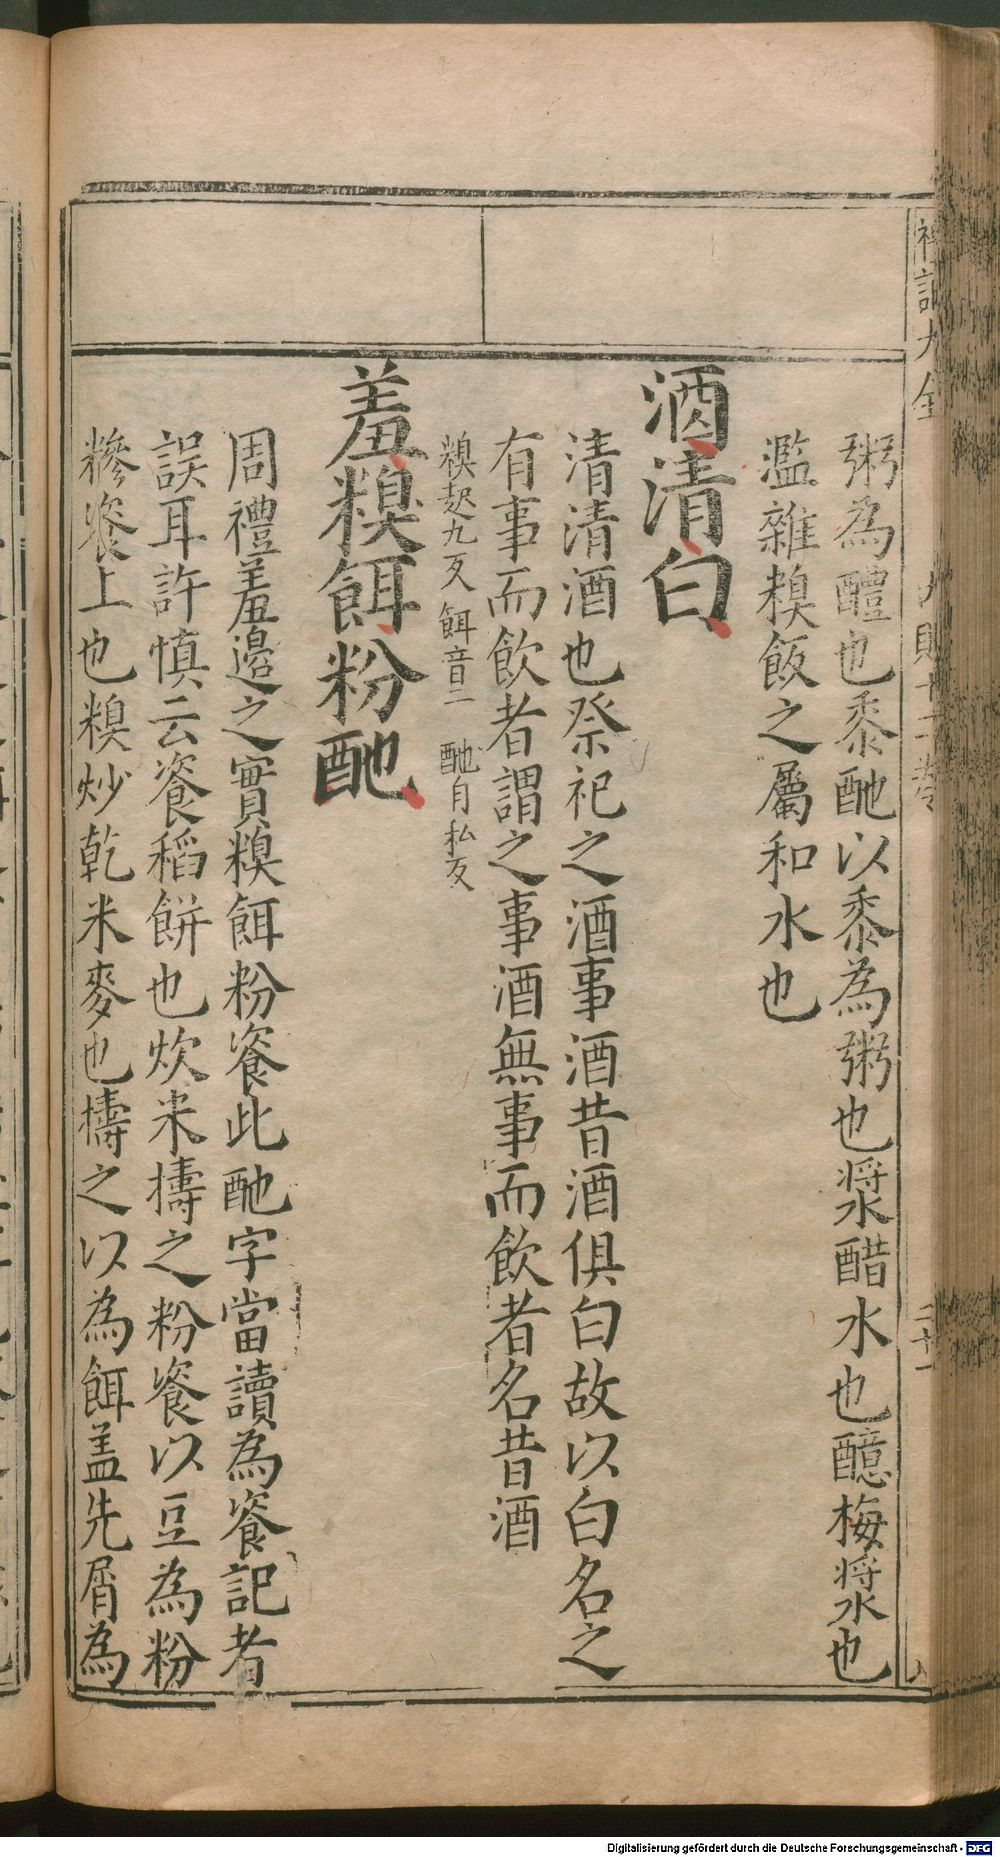 粥為醴也黍酏以黍為粥也漿醋水也醷梅漿也
濫雜糗飯之屬和水也
酒清白
清清酒也祭祀之酒事酒昔酒俱白故以白名之
有事而飲者謂之事酒無事而飲者名昔酒
糗起九反 餌音二 酏自私反
羞糗餌粉酏
周禮羞邊之實糗餌粉餈此酏字當讀為餈記者
誤耳許慎云餈稻餅也炊米擣之粉餈以豆為粉
糝餈上也糗炒乾米麥也擣之以為餌盖先屑為
Digitalisierung gefördert durch die Deutsche Forschungsgemeinschaft - DFG